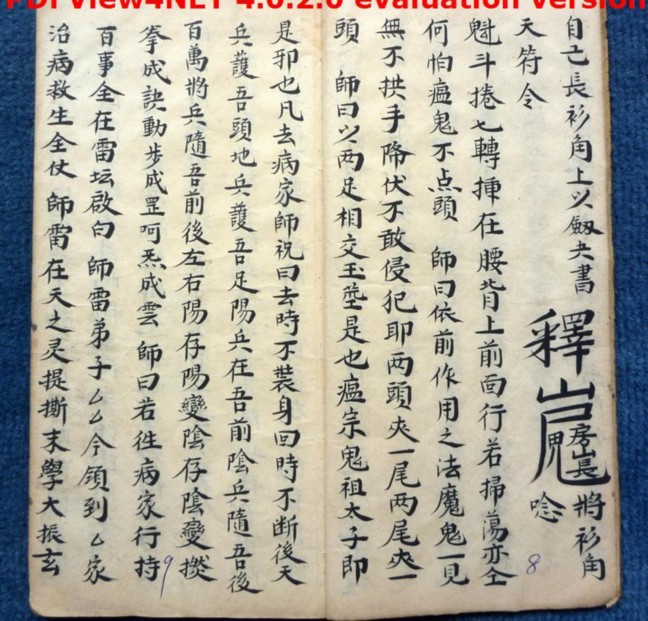 PDFView4NET 4.0.2.0 evaluation version
自己長衫角上以劔夬書
將衫角
天符令
唸
魁斗捲七轉揷在腰背上前面行若掃蕩亦全
何怕瘟鬼不点頭 師曰依前作用之法魔鬼一見
無不拱手降伏不敢侵犯耶两頭夾一尾两尾夾一
頭 師曰以两足相交玉墊是也瘟宗鬼祖太子即
8
是卭也凡去病家師祝曰去時不裝身囘時不断後天
兵護吾頭地兵護吾足陽兵在吾前陰兵隨吾後
百萬將兵隨吾前後左右陽存陽變陰存陰變摸
拳成訣動步成罡呵炁成雲 師曰若徃病家行持
百事全在雷坛啟白 師雷弟子厶厶今領到厶家
治病救生全仗 師雷在天之灵提撕末學大振玄
9